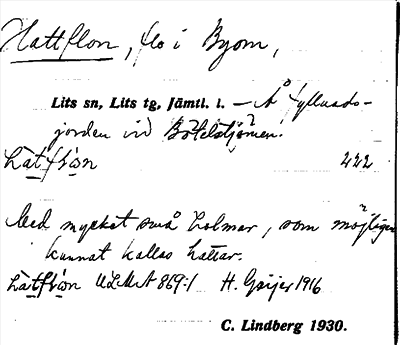 Hattflon, flo i Byom,
Lits sn, Lits tg, Jämtl. l. – Å fyllnads-
jorden vid Bötelstjärnen.
222
Med mycket små holmar, som möjligen
kunnat kallas hattar.
ULMA 869:1 H. Geijer 1916
C. Lindberg 1930.